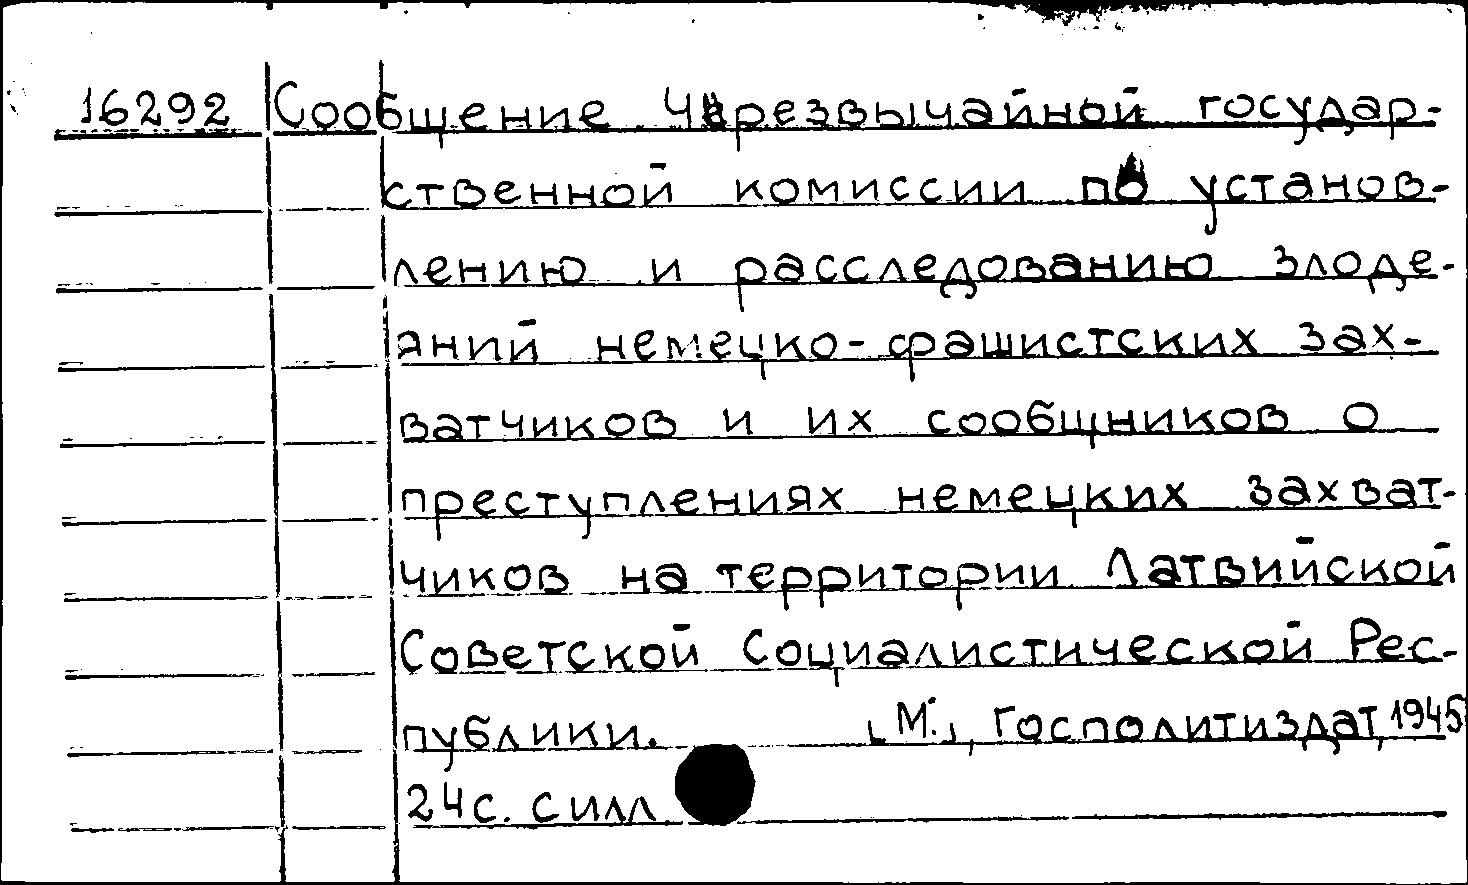 16292 Сообщение Чрезвычайной государ-
ственной комиссии по установ-
лению и расследованию злоде-
яний немецко-фашистских зах-
ватчиков и их сообщников о
преступлениях немецких захват-
чиков на территории Латвийской
Советской Социалистической Рес-
публики. [М.], Госполитиздат, 1945
24с. с илл